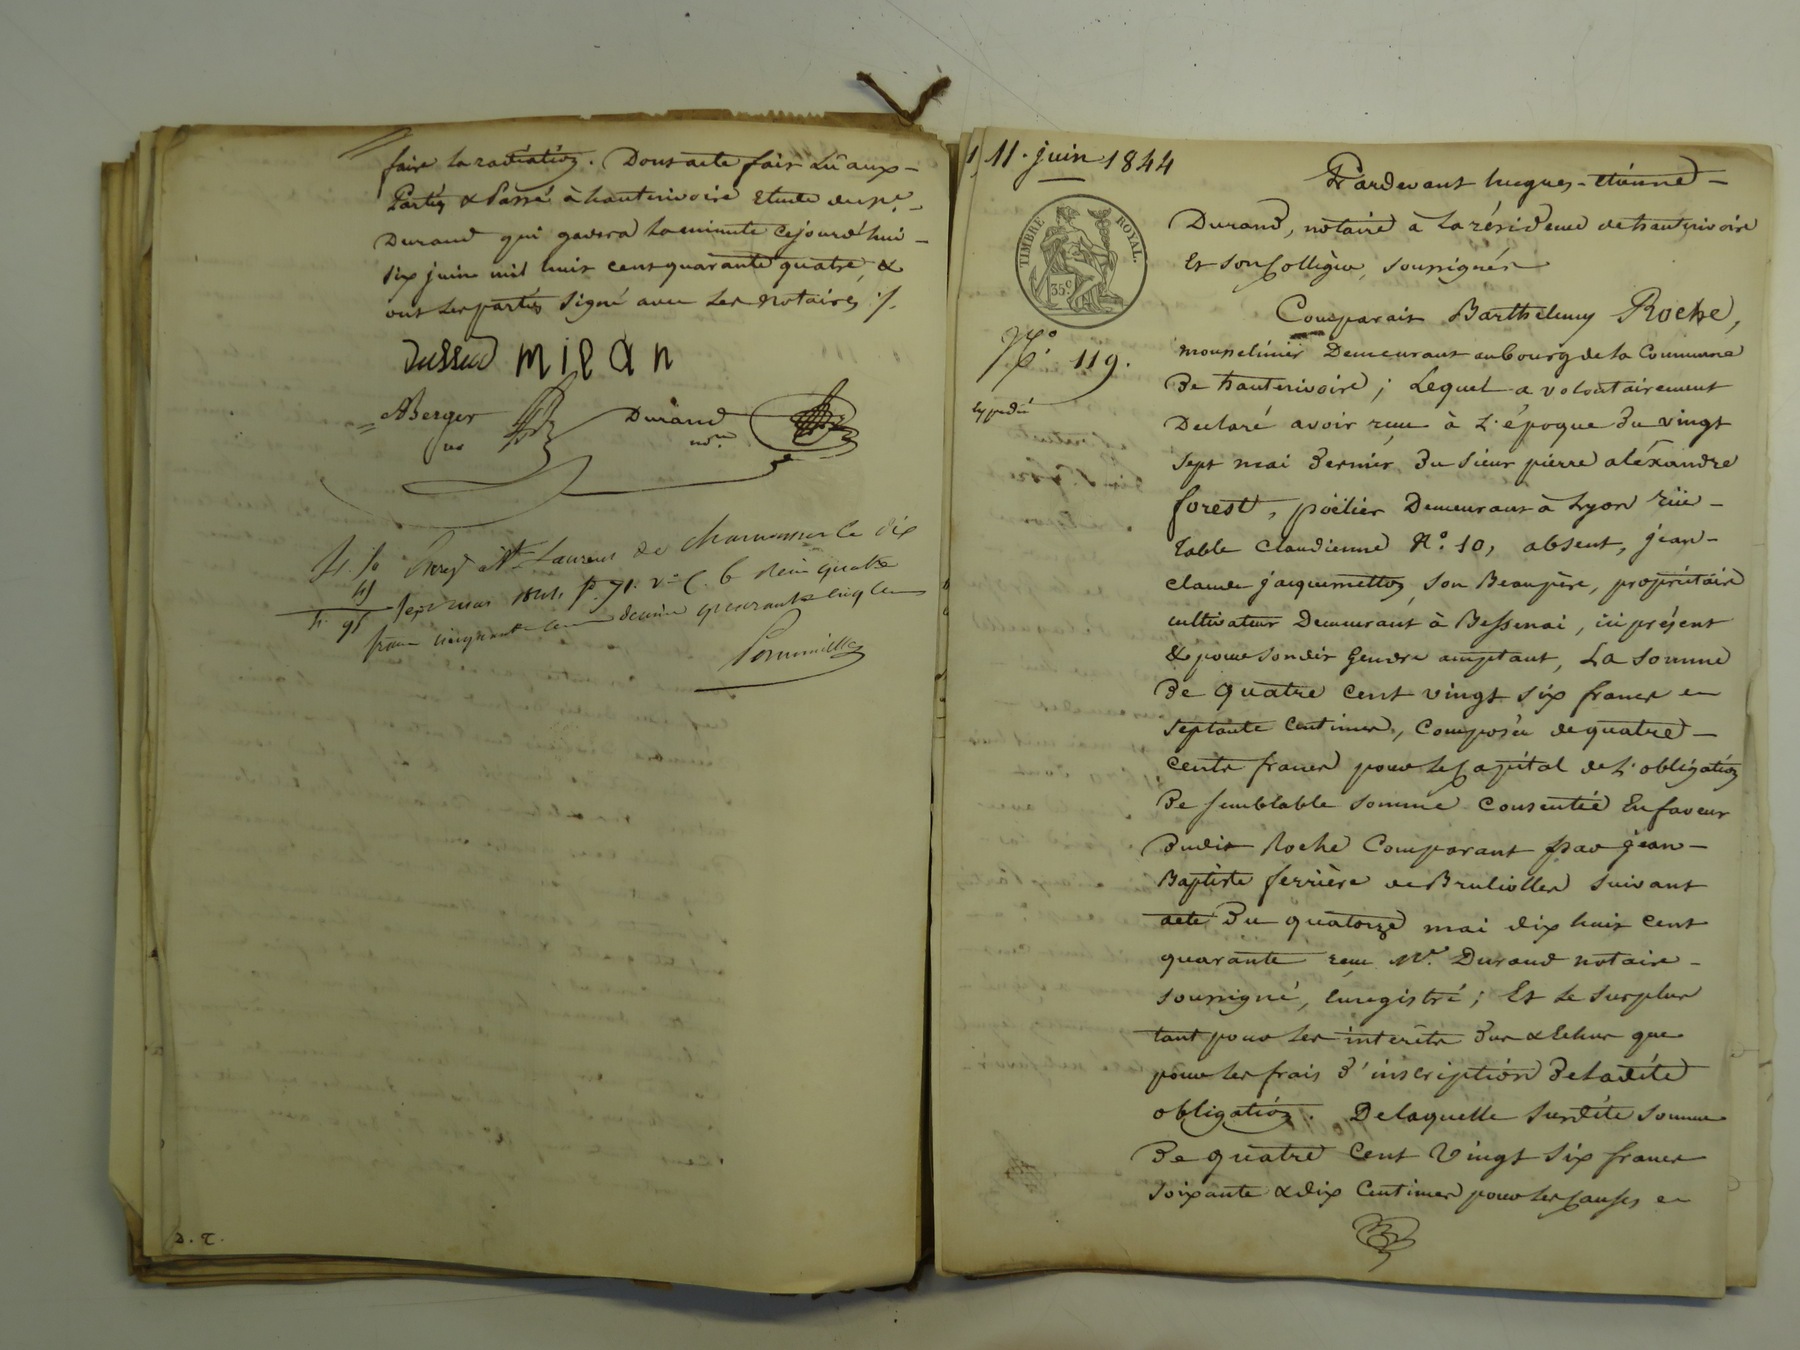 faire la radiation. Dont acte fait Lu aux
Parties & Passé à hauterivoire Etude du Me.
Durand qui gardera la minute Cejourd'hui
six juin mil huit cent quarante quatre, &
ont les parties signé avec les notaires ./.
Dussud milan
Berger
nre Durand
nore
4. 50 Enreg. à St. Laurent de Chamousset le dix
45
4. 95
sept juin 1844, f. 71. vo. C. 6 Reçu quatre
francs cinquante centimes décime quarante cinq cen
D. T.
11. juin 1844
TIMBRE ROYAL.
35 c
No. 119.
expédié
Pardevant hugues-étienne
Durand, notaire à la résidence de hauterivoire
Et son Collègue, soussignés
Comparait Barthélemy Roche,
mousselinier Demeurant au bourg de la Commune
De hauterivoire ; Lequel a volontairement
Déclaré avoir reçu à L'époque Du vingt
sept mai Dernier, Du sieur pierre aléxandre
forest, poëlier Demeurant à Lyon rüe
table claudienne No. 10, absent, jean-
claude jacquemetton, son Beaupère, propriétaire
cultivateur Demeurant à Bessenai, ici présent
& pour son dit Gendre acceptant, La somme
De quatre cent vingt six francs et
septante centimes, Composée de quatre
cents francs pour le Capital de L'obligation
De semblable somme Consentie En faveur
Dudit Roche Comparant par jean-
Baptiste ferrière de Brulioller suivant
acte Du quatorze mai dix huit cent
quarante reçu Me. Durand notaire
soussigné, Enregistré ; Et le surplus
tant pour les intérêts Dus & Echus que
pour les frais D'inscription De Ladite
obligation. De laquelle susdite somme
De quatre Cent Vingt Six francs
soixante & dix Centimes pour les causes et